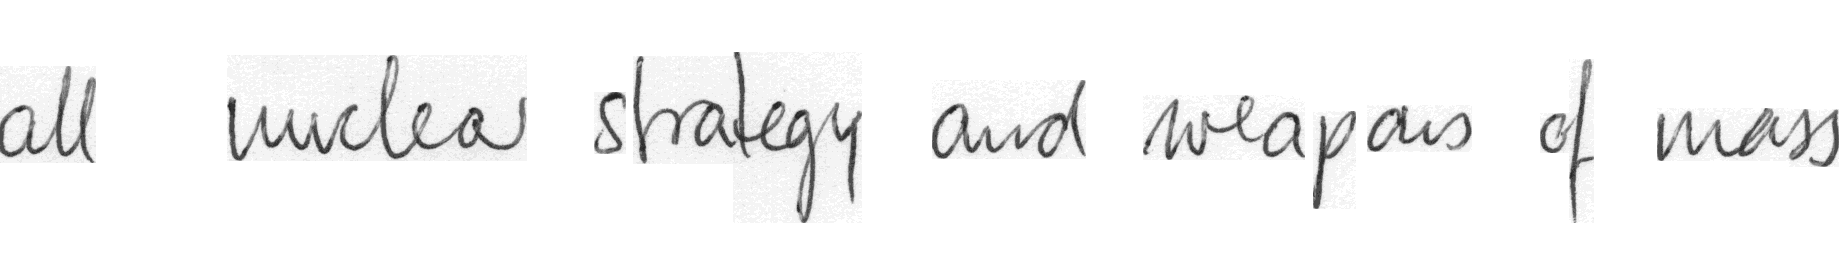 all nuclear strategy and weapons of mass